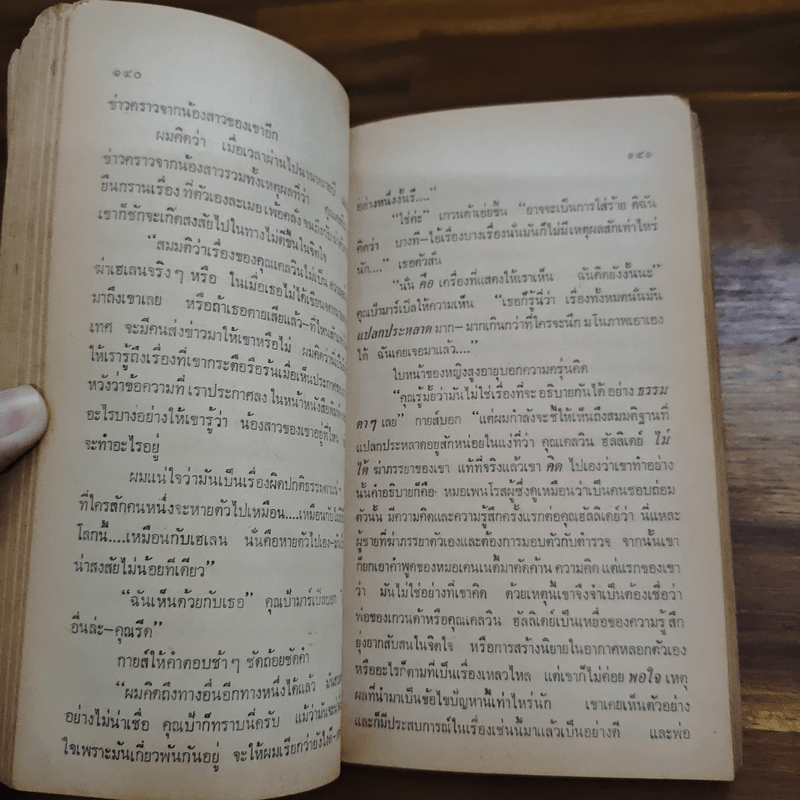 ๑๔๐
ข่าวคราวจากน้องสาวของเขาอีก
ผมคิดว่า เมื่อเวลาผ่านไปนาน
ข่าวคราวจากน้องสาวรวมทั้งเหตุผลที่ว่า
ยืนกรานเรื่อง ที่ตัวเองละเมอ เพ้อคลั่ง จนถึง
เขาก็ชักจะเกิดสงสัยไปในทางไม่ดีขึ้นในจิตใจ
“สมมติว่าเรื่องของคุณเคลวินไม่เป็น
ฆ่าเฮเลนจริง ๆ หรือ ในเมื่อเธอไม่ได้เขียน
มาถึงเขาเลย หรือถ้าเธอตายเสียแล้ว–ที่ไหน
เทศ จะมีคนส่งข่าวมาให้เขาหรือไม่ ผมคิดว่า
ให้เรารู้ถึงเรื่องที่เขากระตือรือร้นเมื่อเห็นประกาศ
หวังว่าข้อความที่ เราประกาศลง ในหน้าหนังสือพิมพ์
อะไรบางอย่างให้เขารู้ว่า น้องสาวของเขาอยู่ที่ไหน
จะทำอะไรอยู่
ผมแน่ใจว่ามันเป็นเรื่องผิดปกติธรรมดา
ที่ใครสักคนหนึ่งจะหายตัวไปเหมือน....เหมือนกับ
โลกนี้....เหมือนกับเฮเลน นั่นคือหายตัวไปเอง
น่าสงสัยไม่น้อยทีเดียว”
“ฉันเห็นด้วยกับเธอ” คุณป้ามาร์เปิลบอก
อื่นล่ะ–คุณรีด”
กายส์ให้คำตอบช้า ๆ ชัดถ้อยชัดคำ
“ผมคิดถึงทางอื่นอีกทางหนึ่งได้แล้ว
อย่างไม่น่าเชื่อ คุณป้าก็ทราบนี่ครับ แม้ว่ามัน
ใจเพราะมันเกี่ยวพันกันอยู่ จะให้ผมเรียกว่ายังไงดี
๑๔๑
อย่างหนึ่งงั้นรึ....”
“ใช่ค่ะ” เกวนด้าเอ่ยขึ้น “อาจจะเป็นการใส่ร้าย ดิฉัน
คิดว่า บางที–ไอ้เรื่องบางเรื่องนั่นมันก็ไม่มีเหตุผลสักเท่าไหร่
นัก....” เธอตัวสั่น
“นั่น คือ เครื่องที่แสดงให้เราเห็น ฉันคิดยังงั้นนะ”
คุณป้ามาร์เปิลให้ความเห็น “เธอก็รู้นี่ว่า เรื่องทั้งหมดนั่นมัน
แปลกประหลาด มาก– มากเกินกว่าที่ใครจะนึก มโนภาพเอาเอง
ได้ ฉันเคยเจอมาแล้ว....”
ใบหน้าของหญิงสูงอายุบอกความครุ่นคิด
“คุณรู้มั้ยว่ามันไม่ใช่เรื่องที่จะ อธิบายกันได้ อย่าง ธรรม
ดา ๆ เลย” กายส์บอก “แต่ผมกำลังจะชี้ให้เห็นถึงสมมติฐานที่
แปลกประหลาดอยู่สักหน่อยในแง่ที่ว่า คุณเคลวิน ฮัลลิเดย์ ไม่
ได้ ฆ่าภรรยาของเขา แท้ที่จริงแล้วเขา คิด ไปเองว่าเขาทำอย่าง
นั้นคำอธิบายก็คือ หมอเพนโรสผู้ซึ่งดูเหมือนว่าเป็นคนชอบถ่อม
ตัวนั้น มีความคิดและความรู้สึกครั้งแรกต่อคุณฮัลลิเดย์ว่า นี่แหละ
ผู้ชายที่ฆ่าภรรยาตัวเองและต้องการมอบตัวกับตำรวจ จากนั้นเขา
ก็ยกเอาคำพูดของหมอเคนเนดี้มาคัดค้าน ความคิด แต่แรกของเขา
ว่า มันไม่ใช่อย่างที่เขาคิด ด้วยเหตุนี้เขาจึงจำเป็นต้องเชื่อว่า
พ่อของเกวนด้าหรือคุณเคลวิน ฮัลลิเดย์เป็นเหยื่อของความรู้สึก
ยุ่งยากสับสนในจิตใจ หรือการสร้างนิยายในอากาศหลอกตัวเอง
หรืออะไรก็ตามที่เป็นเรื่องเหลวไหล แต่เขาก็ไม่ค่อย พอใจ เหตุ
ผลที่นำมาเป็นข้อไขปัญหานี้เท่าไหร่นัก เขาเคยเห็นตัวอย่าง
และก็มีประสบการณ์ในเรื่องเช่นนี้มาแล้วเป็นอย่างดี และพ่อ